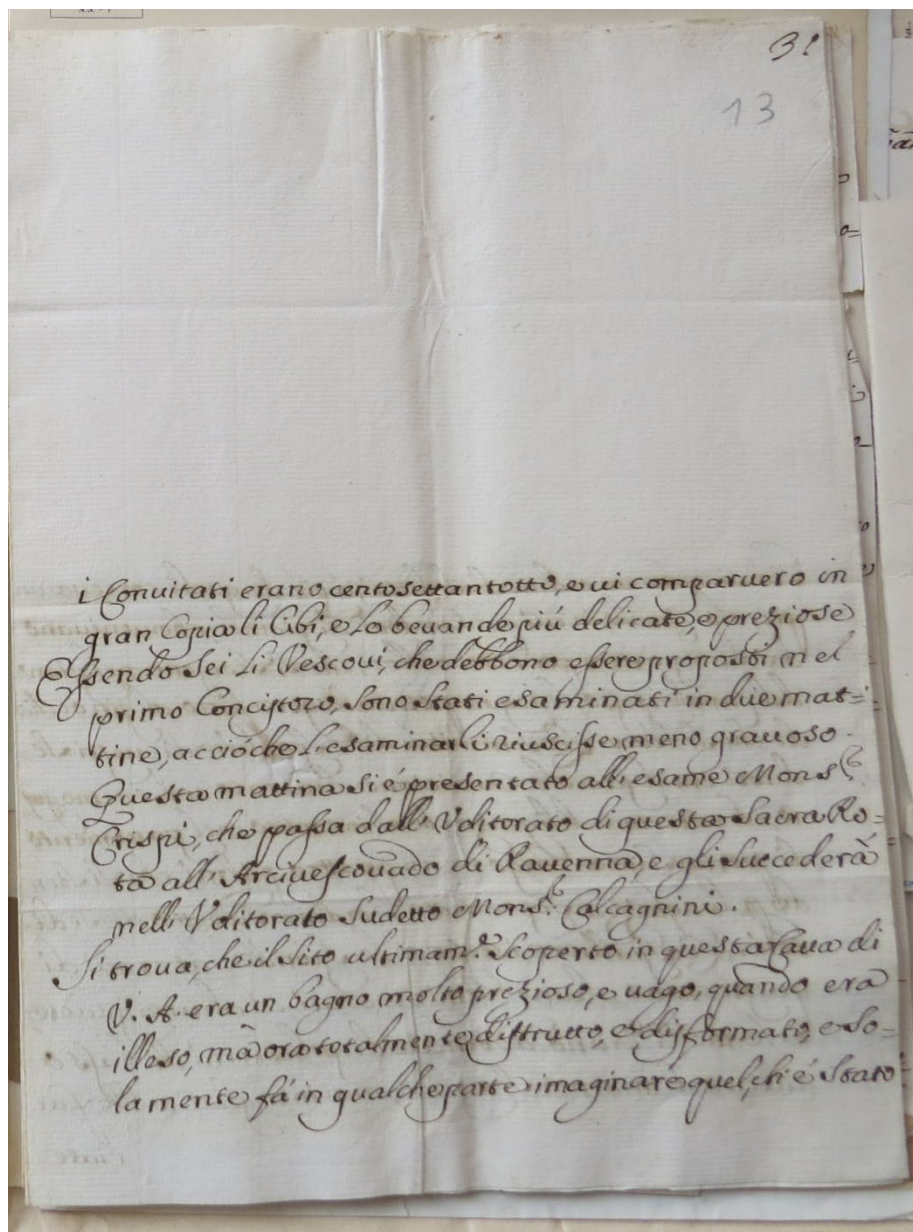 31
13
i Convitati erano cento settantotto, e vi comparvero in
gran Copia li Cibi, e le bevande più delicate, e preziose
Essendo sei li Vescovi, che debbono essere proposti nel
primo Concistoro, sono stati esaminati in due mat=
tine, acciòche l'esaminarli riuscisse meno gravoso.
Questa mattina si é presentato all'esame Mons.r
Crispi, che passa dall'Uditorato di questa Sacra Ro=
ta all'Arcivescovado di Ravenna, e gli succederà
nell'Uditorato sudetto Mons.r Calcagnini.
Si trova, che il sito ultimam.e scoperto in questa Cava di
V. A. era un bagno molto prezioso, e vago, quando era
illeso, mà ora totalmente distrutto, e disformato, e so=
lamente fá in qualche parte imaginare quel, ch'é stato